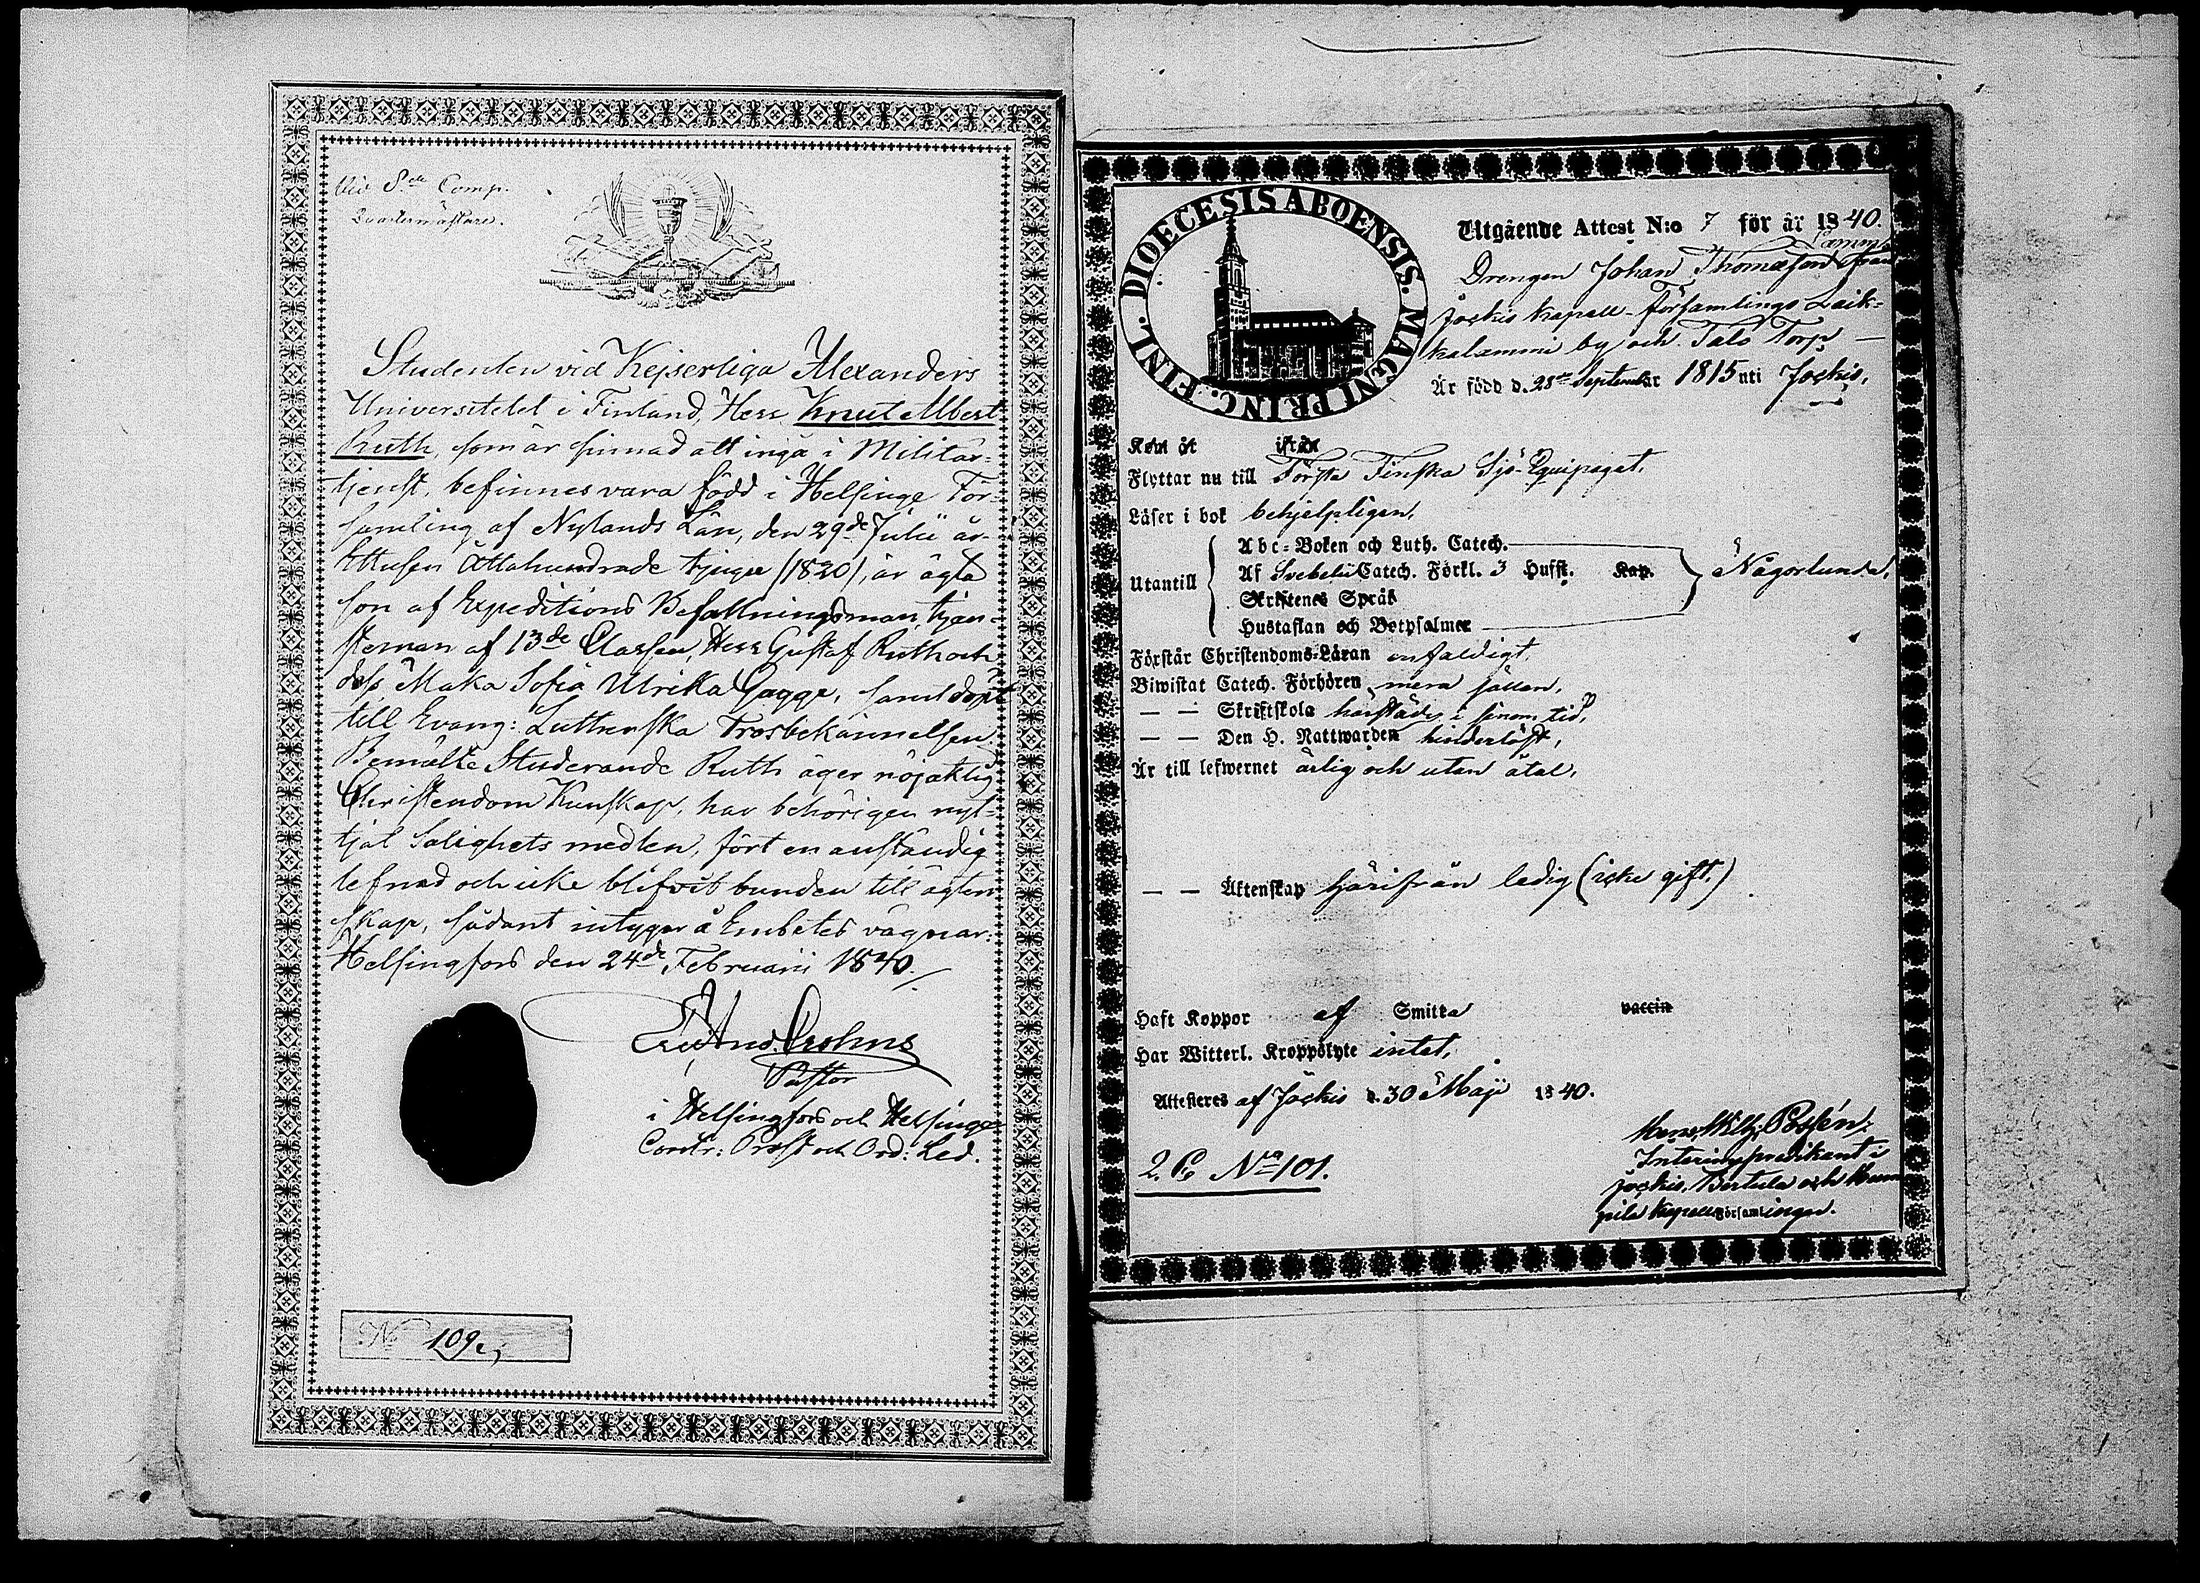 Vid 8.de Comp.
Qvartermästare.
Studenten vid Kejserliga Alexanders
Universitetet i Finland, Herr Knut Albert
Ruth, som är sinnad att ingå i Militär-
tjenst, befinnes vara född i Helsinge För-
samling af Nylands Län, den 29de Julii år
Ettusen Åttahundrade tjuge (1820), är ägta
son af Expeditions Befallningsman, tjen-
steman af 13de Classen, Herr Gustaf Ruth och
dess Maka Sofia Ulrika Gagge, samt döpt
till Evang: Lutherska Trosbekännelsen.
Bemälte Studerande Ruth äger nöjaktig
Christendom Kunskap, har behörigen nyt-
tjat Salighets medlen, fört en anständig
lefnad och icke blifvit bunden till ägten
skap, sådant intygar å Embetes vägnar.
Helsingfors den 24de Februarii 1840.
Crohns
Pastor
i Helsingfors och Helsinge
Contr: Prost och Ord: Led.
No 109.
DIOECESIS ABOENSIS. MAGNI PRINC. FINL.
Utgående Attest N:o 7 för år 1840.
Drengen Johan Thomasson från
Jockis kapell-församlings
kalammi by och Talo Torp
Är född d. 28de September 1815 uti Jockis.
Kom åt ifrån
Flyttar nu till Första Finska Sjö-Equipaget.
Läser i bok behjelpligen.
Utantill
Abc-Boken och Luth. Catech.
Af Svebelii Catech. Förkl. 3 Hufst. Kap.
Skriftenes Språk
Hustaflan och Botpsalmer
Någorlunda.
Förstår Christendoms-Läran enfaldigt.
Biwistat Catech. Förhören mera sällan.
— — Skriftskola härstädes i sinom tid.
— — Den H. Nattwarden hinderlöst.
Är till lefwernet ärlig och utan åtal.
— — Äktenskap härifrån ledig (icke gift.)
Haft Koppor af Smitta vaccin
Har Witterl. Kroppslyte intet.
Attesteres af Jockis d. 30 Maji 1840.
2. C. No 101.
Interimspredikant i
Jockis, Bertula och Hum
pila Kapell Församlingar.